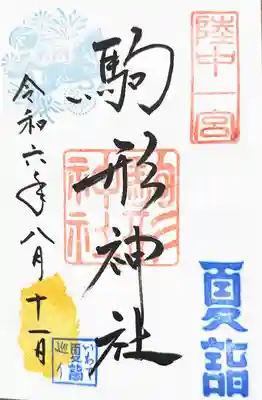 陸中一宮
駒形神社
駒形
神社
夏詣
令和六年八月十一日
いわて
夏詣
巡り